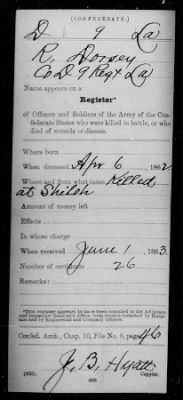 (CONFEDERATE.)
D 9 La
R. Dorsey
Co D 9 Regt La
Name appears on a
Register*
of Officers and Soldiers of the Army of the Confederate
States who were killed in battle, or who
died of wounds or disease.
Where born
When deceased Apr 6, 1862.
Where and from what cause Killed
at Shiloh
Amount of money left
Effects
In whose charge
When received June 1, 1863.
Number of certificate 26
Remarks:
*This register appears to have been compiled in the Adjutant
and Inspector General's Office from
and by Regimental and Company Officers.
Confed. Arch., Chap. 10, File No. 6, page 46
J. B. Hyatt
Copyist.